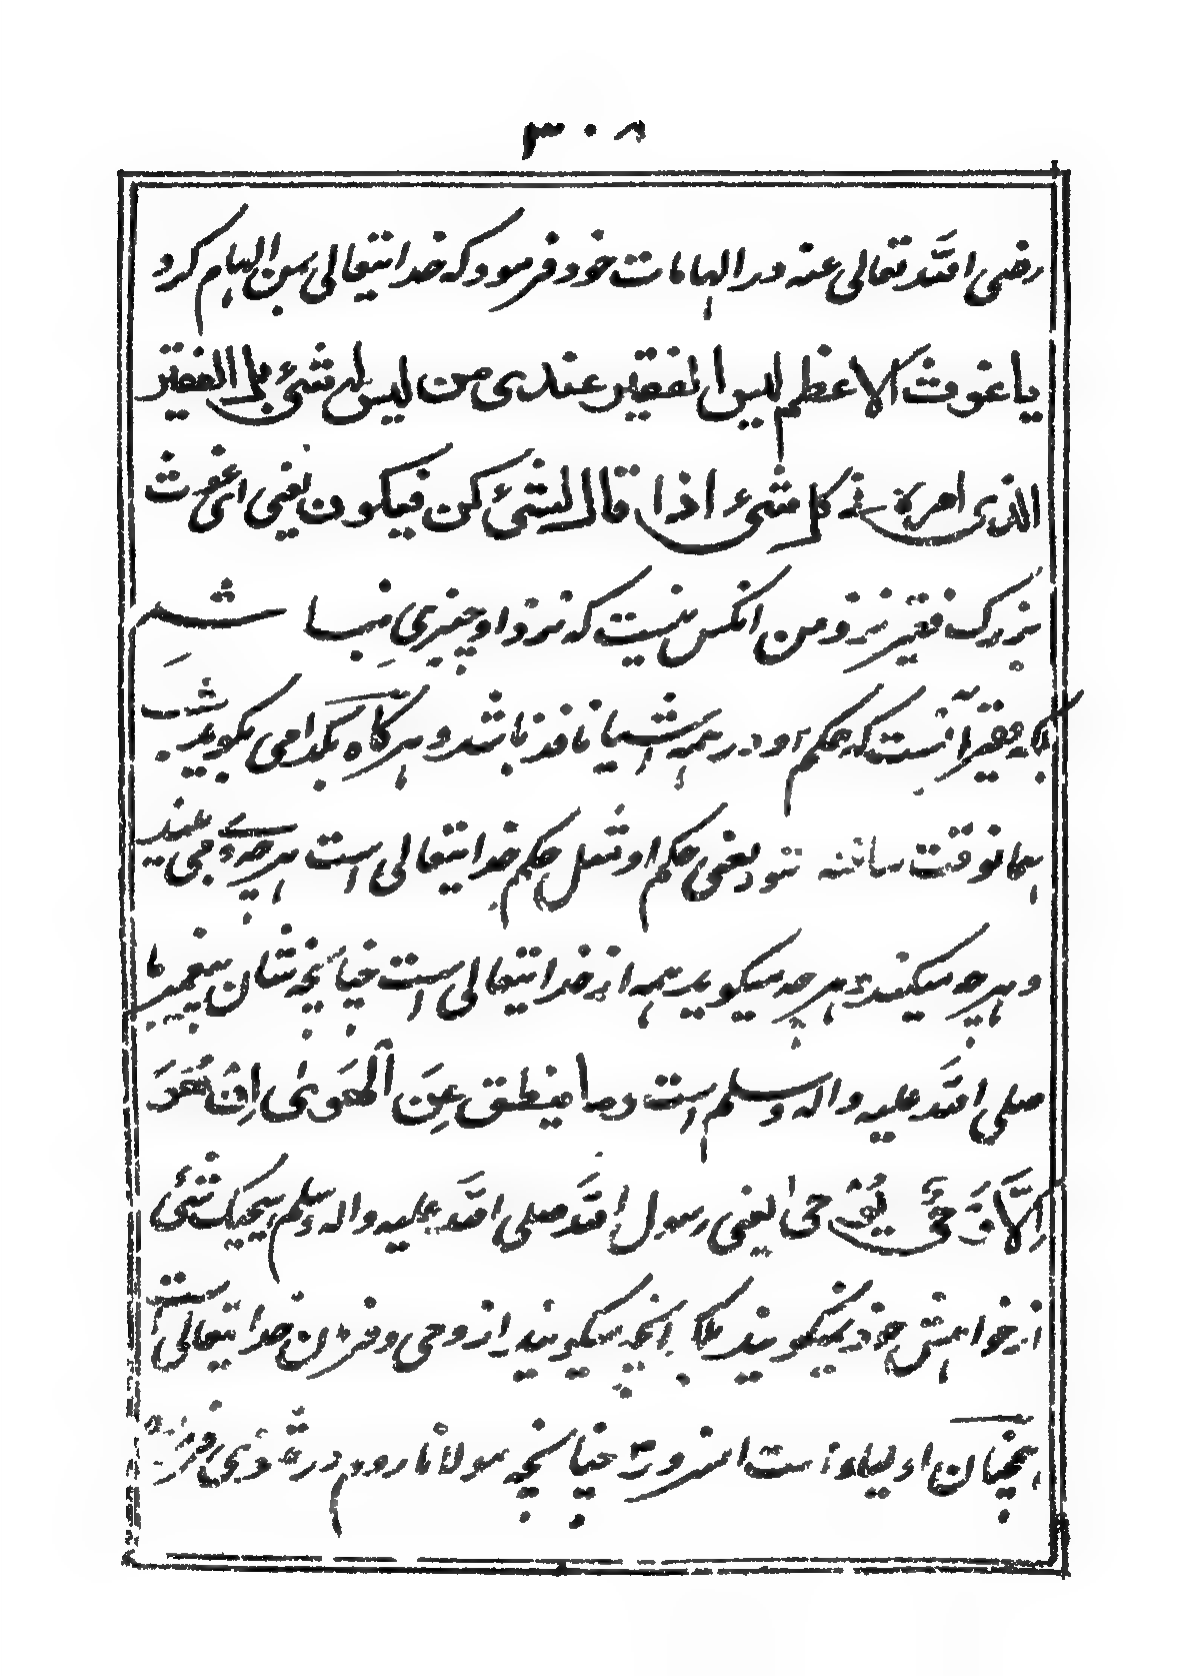 ۳۰۸
رضی الله تعالی عنه در الهامات خود فرمود که خدایتعالی بمن الهام کرد
یا غوث الاعظم لیس الفقیر عندی من لیس له شئ بل الفقیر
الذی امره فی کل شئ اذا قال لشئ کن فیکون یعنی ای غوث
بزرگ فقیر نزد من آنکس نیست که نزد او چیزی نباشد
بلکه فقیر آنست که حکم او در همه اشیا نافذ باشد و هرگاه بگدامی بگوید شب
همانوقت ساخته شود یعنی حکم او مثل حکم خدایتعالی است هرچه می
و هرچه میکند و هرچه میگوید همه از خدایتعالی است چنانچه شان پیغمبر ما
صلی الله علیه و اله وسلم است وما ینطق عن الهوی ان هو
الا وحی یوحی یعنی رسول الله صلی الله علیه واله وسلم هیچیک شئ
از خواهش خود نمیگویند بلکه آنچه میگویند از وحی و فرمان خدایتعالی است
همچنان اولیاء است امروز چنانچه مولانا روم در مثنوی